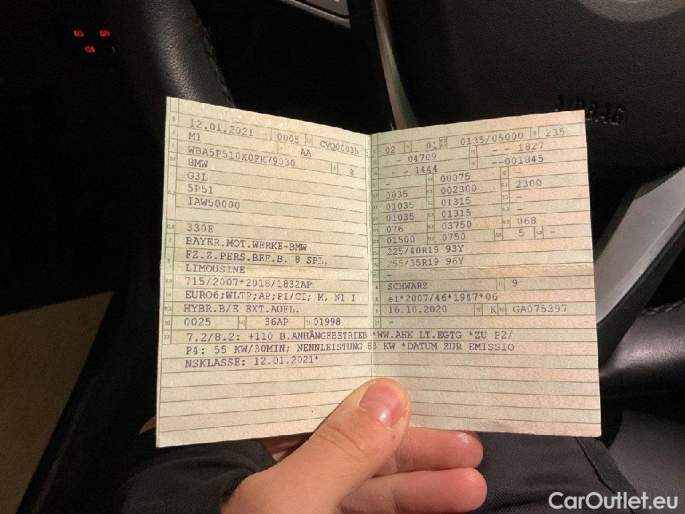 12.01.2021 0005 CVQ00035
M1 AA
8
BMW
G3L
5P51
IAW50000
330E
BAYER.MOT.WERKE-BMW
FZ.Z.PERS.BEF.B. 8 SPL.
LIMOUSINE
715/2007*2018/1832AP
EURO6;WLTP;AP;PI/CI; M, N1 I
HYBR.B/E EXT.AUFL.
0025 36AP 01998
02 0135/05000 235
- - 04709 - - 1827
- - 1444 - --001845
- 00075 -
0035 002300 2300
01035 01315 -
01035 01315
076 03750 U6B
01500 0750 5 -
225/40R19 93Y
255/35R19 96Y
-
SCHWARZ 9
e1*2007/46*1987*06
16.10.2020 K GA075397
7.2/8.2: +110 B.ANHÄNGEBETRIEB *WW.AHK LT.EGTG *ZU P2/
P4: 55 KW/30MIN; NENNLEISTUNG 83 KW *DATUM ZUR EMISSIO
NSKLASSE: 12.01.2021*
AIRBAG
CarOutlet.eu